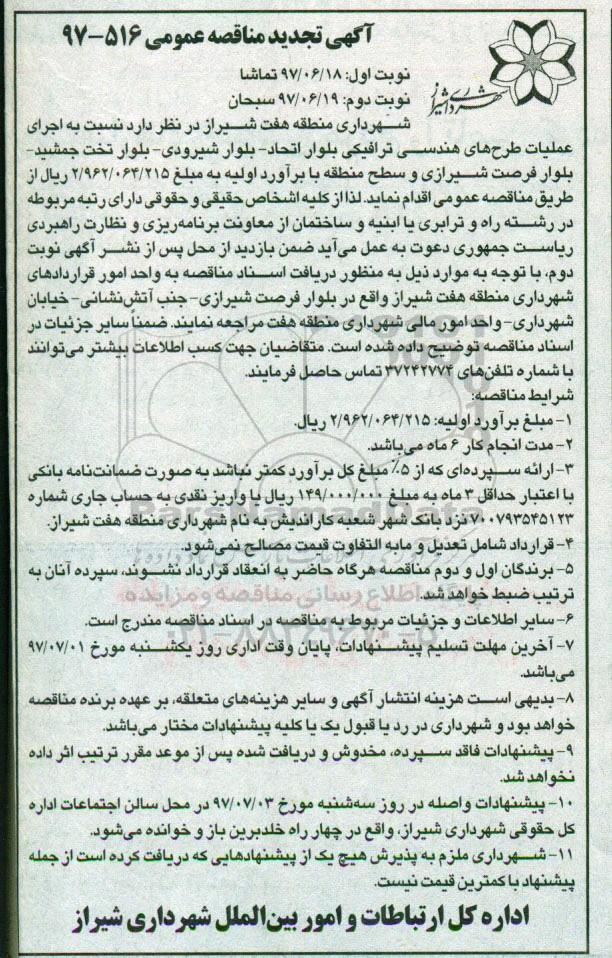 آگهی تجدید مناقصه عمومی ۵۱۶-۹۷
شهرداری شیراز
نوبت اول: ۹۷/۰۶/۱۸ تماشا
نوبت دوم: ۹۷/۰۶/۱۹ سبحان
شهرداری منطقه هفت شیراز در نظر دارد نسبت به اجرای
عملیات طرح‌های هندسی ترافیکی بلوار اتحاد- بلوار شیرودی- بلوار تخت جمشید-
بلوار فرصت شیرازی و سطح منطقه با برآورد اولیه به مبلغ ۲/۹۶۲/۰۶۴/۲۱۵ ریال از
طریق مناقصه عمومی اقدام نماید. لذا از کلیه اشخاص حقیقی و حقوقی دارای رتبه مربوطه
در رشته راه و ترابری یا ابنیه و ساختمان از معاونت برنامه‌ریزی و نظارت راهبردی
ریاست جمهوری دعوت به عمل می‌آید ضمن بازدید از محل پس از نشر آگهی نوبت
دوم، با توجه به موارد ذیل به منظور دریافت اسناد مناقصه به واحد امور قراردادهای
شهرداری منطقه هفت شیراز واقع در بلوار فرصت شیرازی- جنب آتش‌نشانی- خیابان
شهرداری- واحد امور مالی شهرداری منطقه هفت مراجعه نمایند. ضمناً سایر جزئیات در
اسناد مناقصه توضیح داده شده است. متقاضیان جهت کسب اطلاعات بیشتر می‌توانند
با شماره تلفن‌های ۳۷۲۴۲۷۷۴ تماس حاصل فرمایند.
شرایط مناقصه:
۱- مبلغ برآورد اولیه: ۲/۹۶۲/۰۶۴/۲۱۵ ریال.
۲- مدت انجام کار ۶ ماه می‌باشد.
۳- ارائه سپرده‌ای که از ۵٪ مبلغ کل برآورد کمتر نباشد به صورت ضمانت‌نامه بانکی
با اعتبار حداقل ۳ ماه به مبلغ ۱۴۹/۰۰۰/۰۰۰ ریال یا واریز نقدی به حساب جاری شماره
۷۰۰۷۹۳۵۴۵۱۲۳ نزد بانک شهر شعبه کاراندیش به نام شهرداری منطقه هفت شیراز.
۴- قرارداد شامل تعدیل و مابه التفاوت قیمت مصالح نمی‌شود.
۵- برندگان اول و دوم مناقصه هرگاه حاضر به انعقاد قرارداد نشوند، سپرده آنان به
ترتیب ضبط خواهد شد.
۶- سایر اطلاعات و جزئیات مربوط به مناقصه در اسناد مناقصه مندرج است.
۷- آخرین مهلت تسلیم پیشنهادات، پایان وقت اداری روز یکشنبه مورخ ۹۷/۰۷/۰۱
می‌باشد.
۸- بدیهی است هزینه انتشار آگهی و سایر هزینه‌های متعلقه، بر عهده برنده مناقصه
خواهد بود و شهرداری در رد یا قبول یک یا کلیه پیشنهادات مختار می‌باشد.
۹- پیشنهادات فاقد سپرده، مخدوش و دریافت شده پس از موعد مقرر ترتیب اثر داده
نخواهد شد.
۱۰- پیشنهادات واصله در روز سه‌شنبه مورخ ۹۷/۰۷/۰۳ در محل سالن اجتماعات اداره
کل حقوقی شهرداری شیراز، واقع در چهار راه خلدبرین باز و خوانده می‌شود.
۱۱- شهرداری ملزم به پذیرش هیچ یک از پیشنهادهایی که دریافت کرده است از جمله
پیشنهاد با کمترین قیمت نیست.
اداره کل ارتباطات و امور بین‌الملل شهرداری شیراز
ParsNamadData
پایگاه اطلاع رسانی مناقصه و مزایده
۰۲۱-۸۸۳۴۹۶۷۰-۵